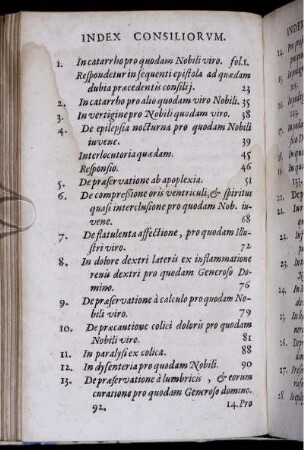 INDEX CONSILIORVM.
1. In catarrho pro quodam Nobili viro. fol. 1.
Respondetur in sequenti epistola ad quædam
dubia præcedentis consilij. 23
2. In catarrho pro alio quodam viro Nobili. 35
3. In vertigine pro Nobili quodam viro. 38
4. De epilepsia nocturna pro quodam Nobili
iuvene. 39
Interlocutoria quædam. 45
Responsio. 46
5. De præservatione ab apoplexia. 51
6. De compressione oris ventriculi, & spiritus
quasi interclusione pro quodam Nob. iu-
vene. 68
7. De flatulenta affectione, pro quodam Illu-
stri viro. 72
8. In dolore dextri lateris ex inflammatione
renis dextri pro quodam Generoso Do-
mino. 76
9. De præservatione à calculo pro quodam No-
bili viro. 79
10. De præcautione colici doloris pro quodam
Nobili viro. 81
11. In paralysi ex colica. 88
12. In dysenteria pro quodam Nobili. 90
13. De præservatione à lumbricis, & eorum
curatione pro quodam Generoso domino.
92. 14. Pro